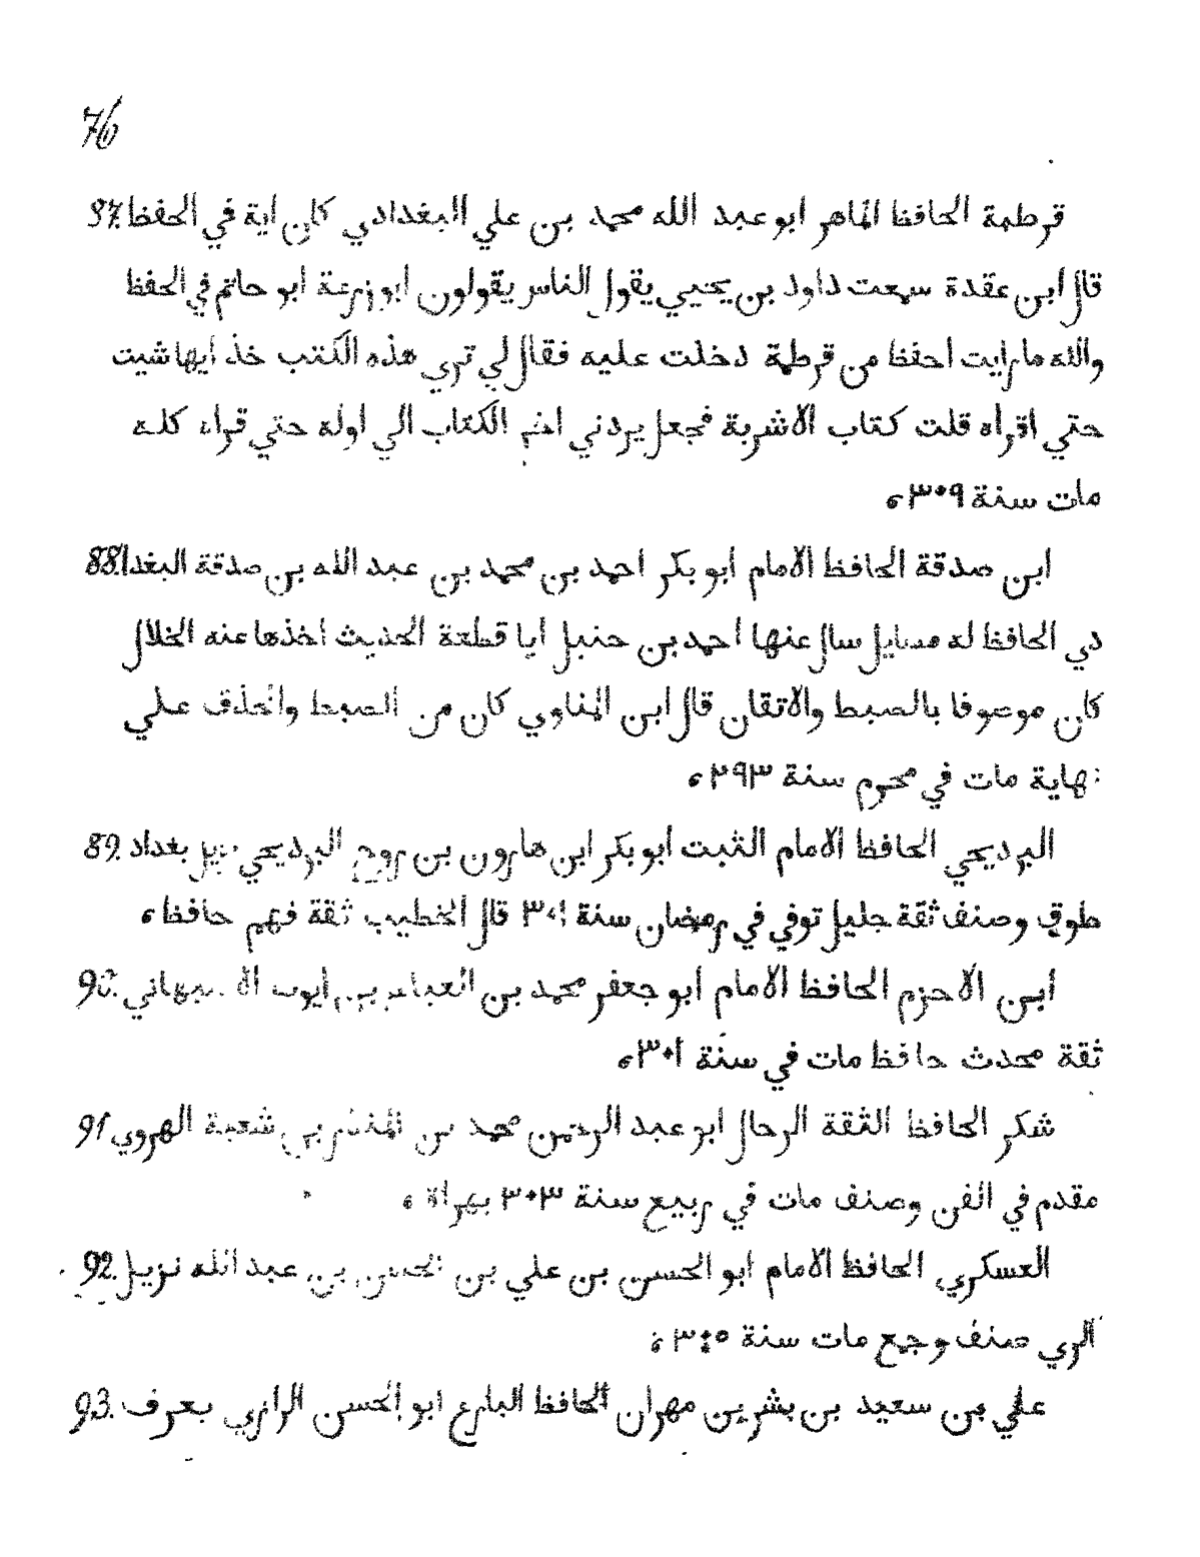 76
87. قرطمة الحافظ الماهر ابو عبد الله محمد بن علي البغدادي كان اية في الحفظ
قال ابن عقدة سمعت داود بن يحيي يقول الناس يقولون ابو زرعة ابو حاتم في الحفظ
والله ما رايت احفظ من قرطمة دخلت عليه فقال لي تري هذه الكتب خذ ايها شيت
حتي اقراه قلت كتاب الاشربة فجعل يردني الكتاب الي اوله حتي قراء كله
مات سنة ٣٠٩ ه
88. ابن صدقة الحافظ الامام ابو بكر احمد بن محمد بن عبد الله بن صدقة البغدا
دي الحافظ له مسايل سال عنها احمد بن حنبل ايا قطعة الحديث اخذها عنه الخلال
كان موصوفا بالضبط والاتقان قال ابن المناوي كان من الضبط والحذق علي
نهاية مات في محرم سنة ٢٩٣ ه
89. البرديجي الحافظ الامام الثبت ابو بكر ابن هارون بن روح البرديجي نزيل بغداد
طوق وصنف ثقة جليل توفي في رمضان سنة ٣٠١ قال الخطيب ثقة فهم حافظ ه
90. ابن الاحزم الحافظ الامام ابو جعفر محمد بن العباس بن ايوب الاصبهاني
ثقة محدث حافظ مات في سنة ٣٠١ ه
91 شكر الحافظ الثقة الرحال ابو عبد الرحمن محمد بن المنذر بن شعبة الهروي
مقدم في الفن وصنف مات في ربيع سنة ٣٠٣ بهراة ه
92. العسكري الحافظ الامام ابو الحسن بن علي بن الحسن بن عبد الله نزيل
الري صنف وجمع مات سنة ٣٠٥ ه
93. علي بن سعيد بن بشر بن مهران الحافظ البارع ابو الحسن الرازي يعرف